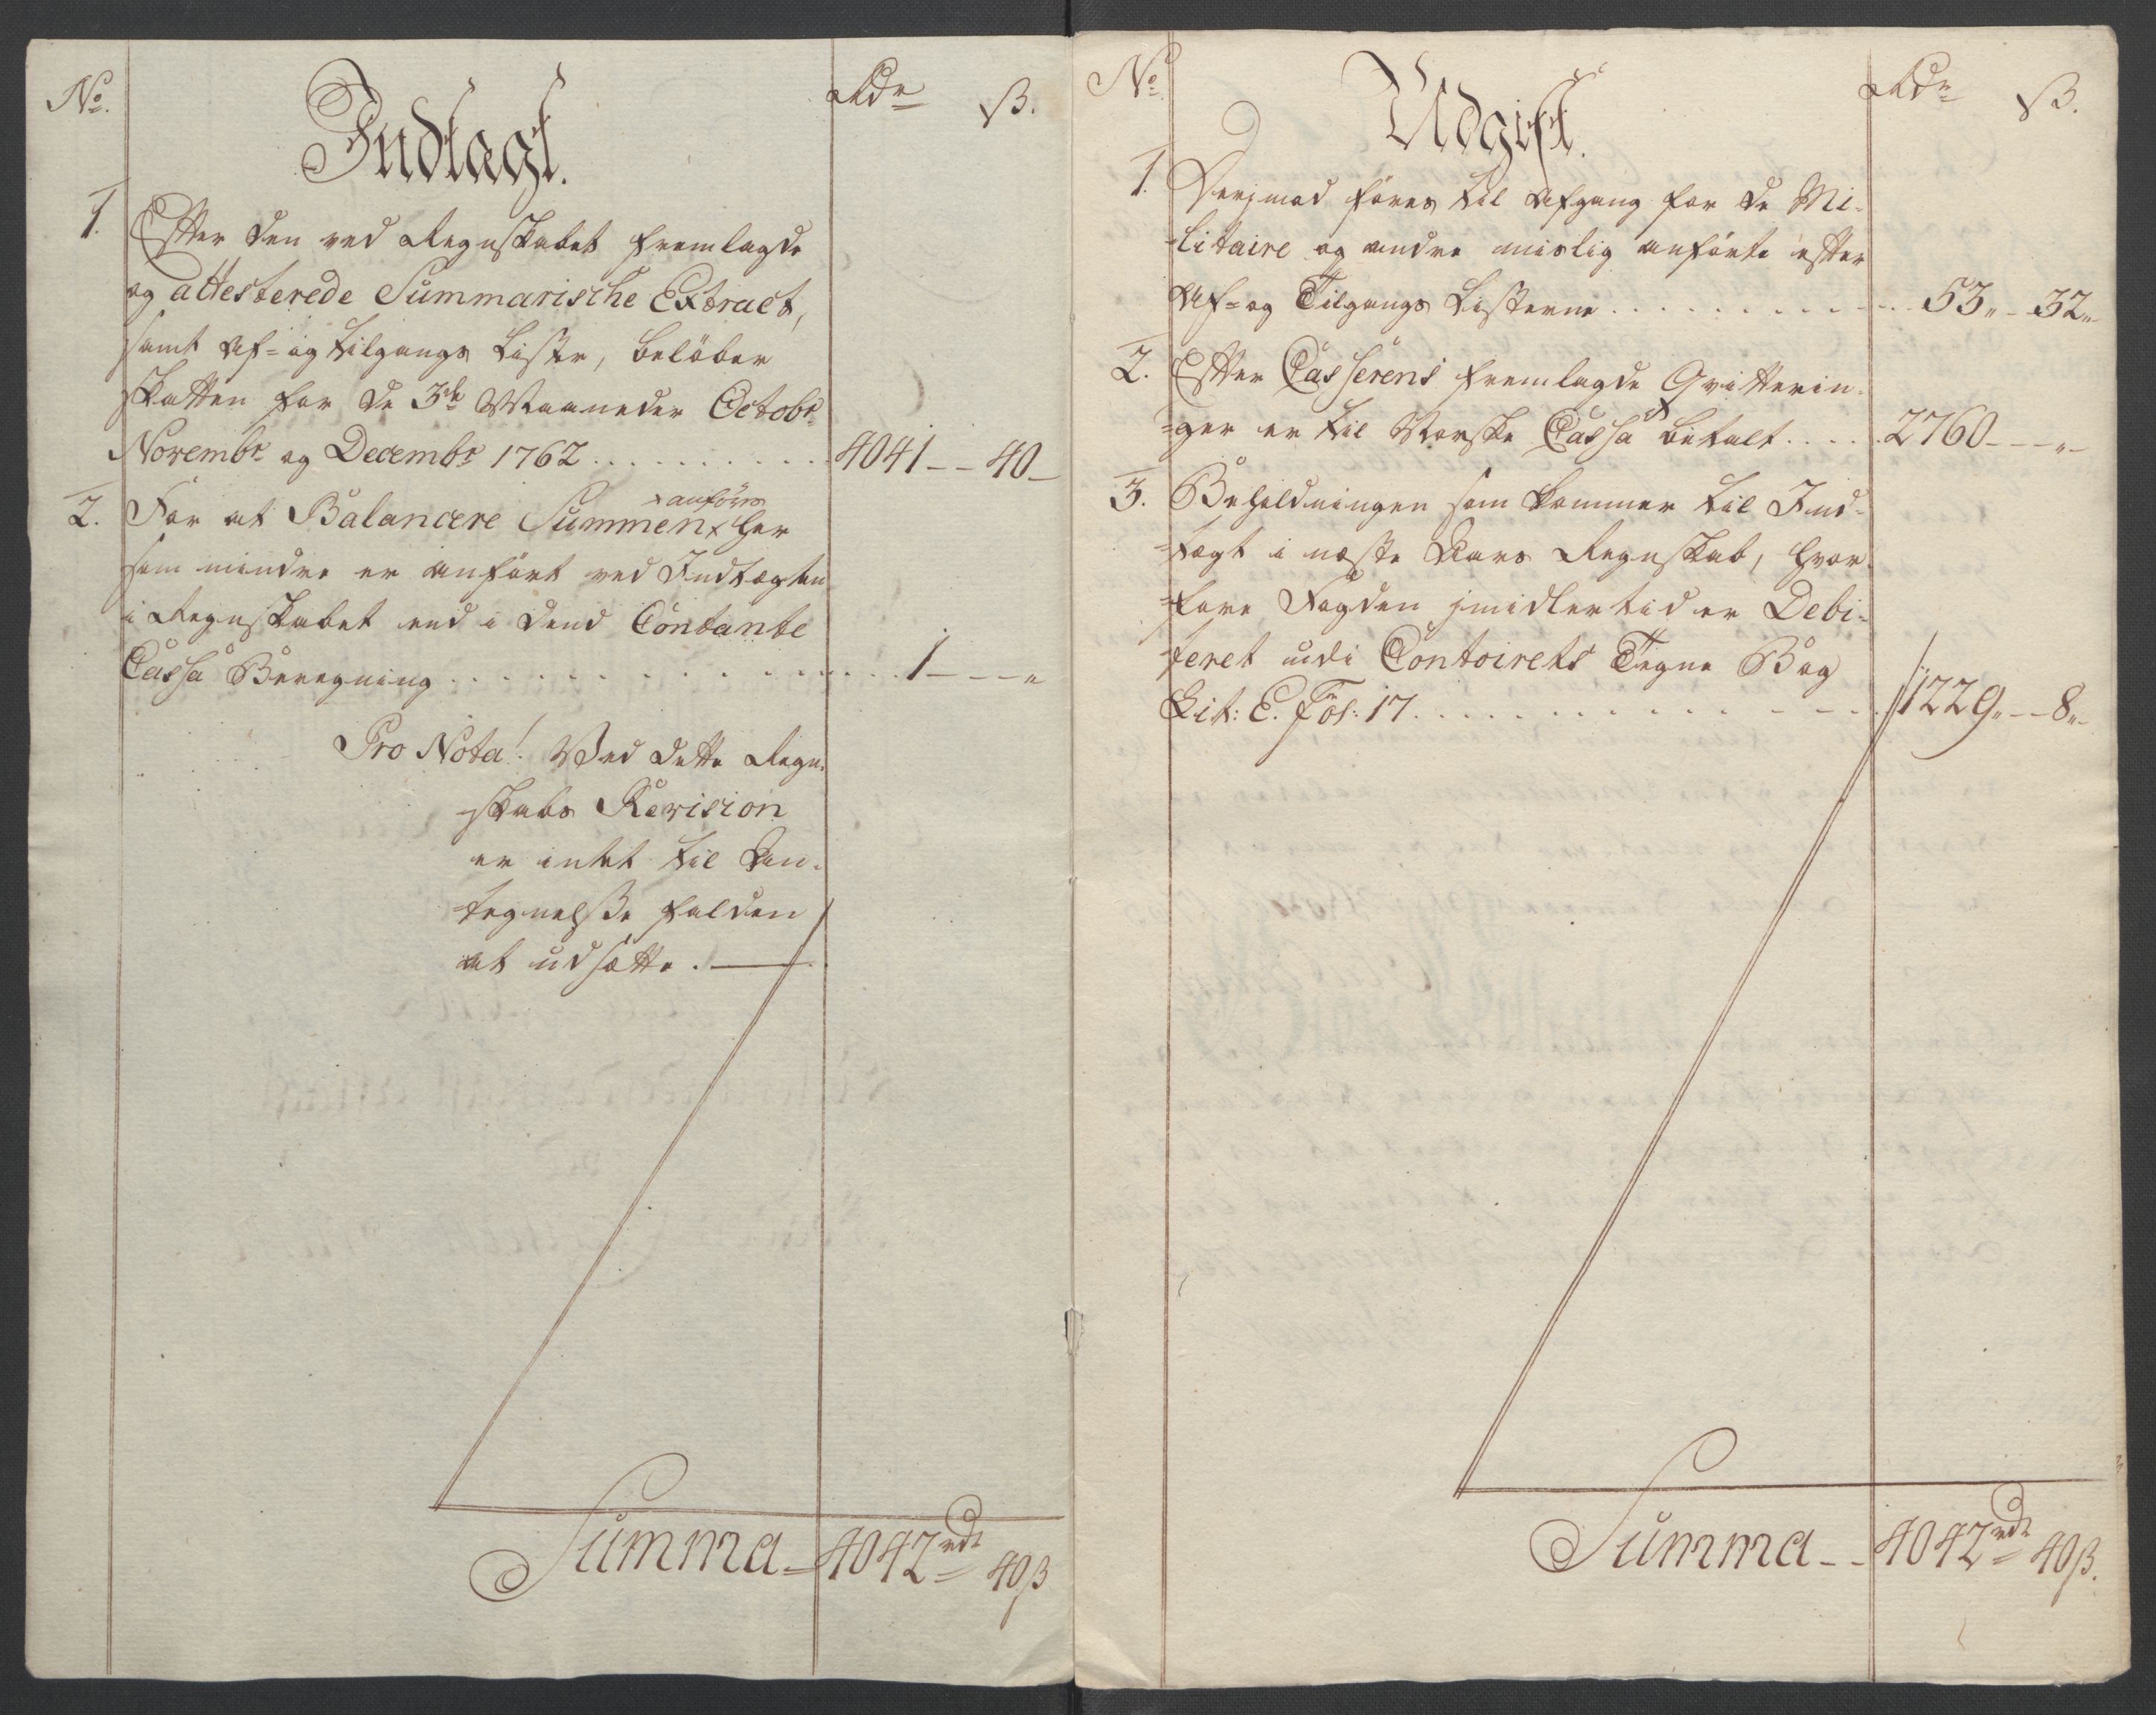 No.
Indtægt.
Rdr
ß.
1.
Efter den ved Regnskabet fremlagde
og attesterede Summarische Extract,
samt Af- og tilgangs Liste, beløber
skatten for de 3de Maaneder Octobr
Novembr og Decembr 1762 . . . . . . . . . . 4041 - - 40 -
2.
× anføres
For at Balancere Summen × her
som mindre er anført ved Indtægten
i Regnskabet end i dend Contante
Cassa Beregning . . . . . . . . . . . . . . 1 - - - "
Pro Nota! Ved dette Regn-
-skabs Revision
er intet til An-
tegnelße falden
at udsætte. —
Summa - 4042 rdr 40 ß
No
Udgift.
Rdr
ß.
1.
Derimod føres til Afgang for de Mi-
-litaire og andre mislig anførte efter
Af- og Tilgangs Listerne . . . . . . . . . . . 53 " - 32 "
2.
Efter Casserens fremlagde Qvitterin-
-ger er til Norske Cassa betalt . . . . . 2760 - - - " -
3.
Beholdningen som kommer til Ind-
-tægt i næste Aars Regnskab, hvor-
-fore Fogden jmidlertid er Debi-
-teret udi Contoirets Tegne Bog
Lit: E. Fol: 17. . . . . . . . . . . . . . . 1229 " - - 8 "
Summa - - 4042 rdr 40 ß.